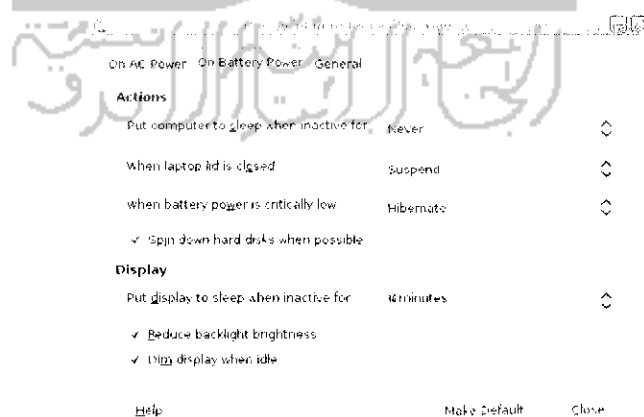 On AC Power On Battery Power General
Actions
Put computer to sleep when inactive for Never
When laptop lid is closed Suspend
When battery power is critically low Hibernate
✓ Spin down hard disks when possible
Display
Put display to sleep when inactive for minutes
✓ Reduce backlight brightness
✓ Dim display when idle
Help Make Default Close